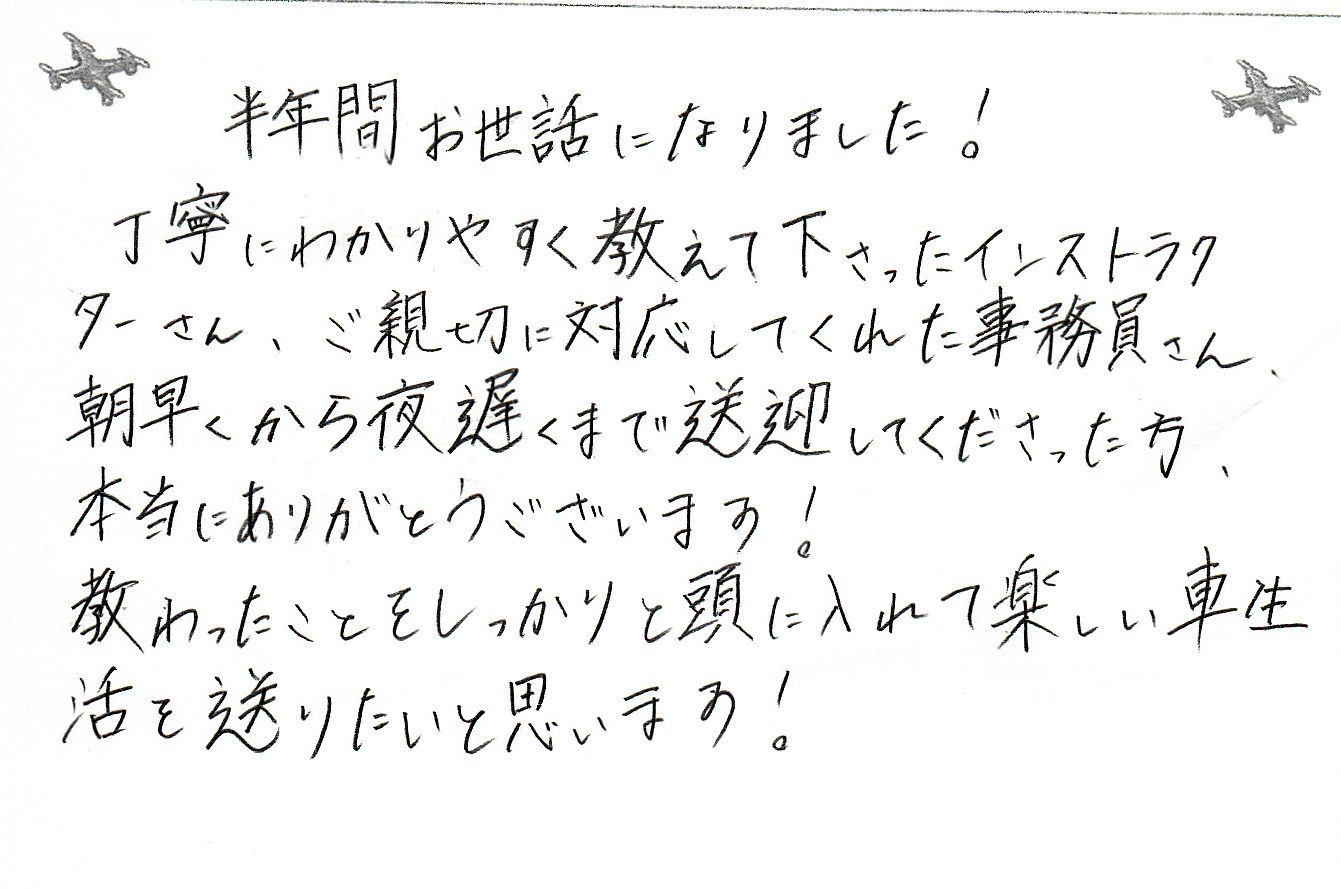 半年間お世話になりました!
丁寧にわかりやすく教えて下さったインストラク
ターさん、ご親切に対応してくれた事務員さん、
朝早くから夜遅くまで送迎してくださった方、
本当にありがとうございます!
教わったことをしっかりと頭に入れて楽しい車生
活を送りたいと思います!